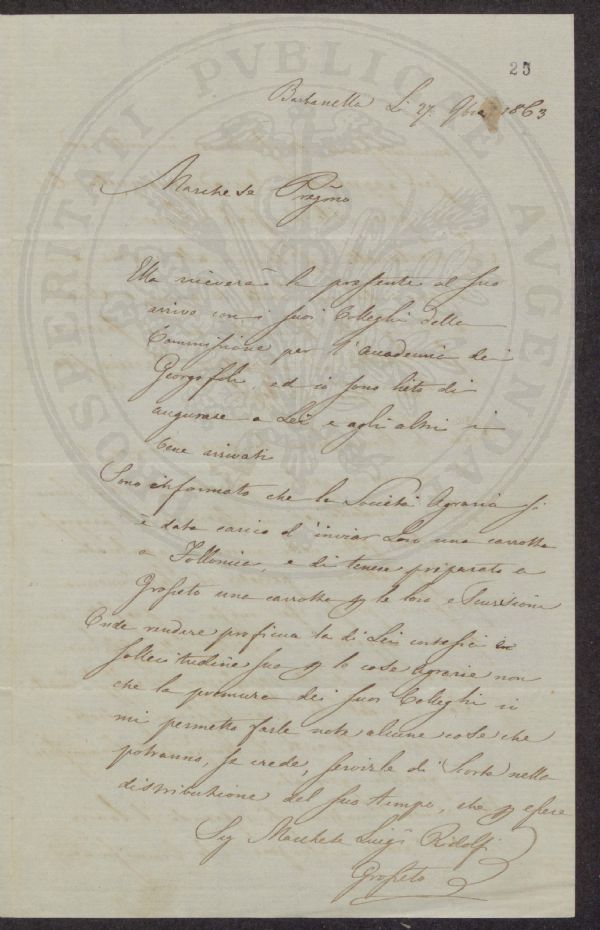 25
Barbanella Li 27. 9bre 1863
Marchese Pregmo
Ella riceverà la presente al suo
arrivo con i suoi Colleghi della
Commissione per l'Accademia dei
Georgofili, ed io sono lieto di
augurare a Lei e agli altri i
bene arrivati
Sono informato che la Società Agraria si
è data carico d'inviar Loro una carrozza
a Follonica, e di tenere preparata a
Grosseto una carrozza p le loro escursioni
Onde rendere proficua la di Lei
sollecitudine sua p le cose agrarie non
che la premura dei suoi Colleghi io
mi permetto farle note alcune cose che
potranno, se crede, servirle di scorta nella
distribuzione del suo tempo, che p essere
Sig Marchese Luigi Ridolfi
Grosseto
PROSPERITATI PVBLICAE AVGENDAE